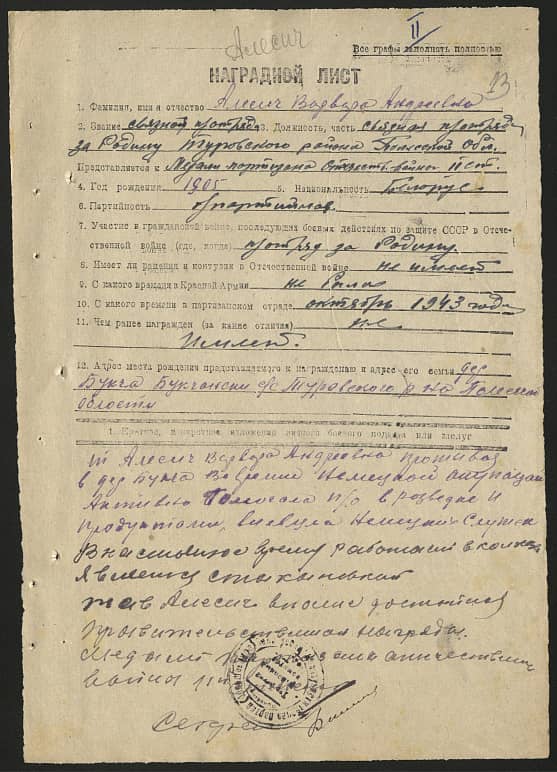 II
Алесич
Все графы заполнять полностью
НАГРАДНОЙ ЛИСТ
13
1. Фамилия, имя и отчество Алесич Варвара Андреевна
2. Звание связной п/отряда 3. Должность, часть связная п/отряда
за Родину Туровского района Полесской Обл.
Представляется к Медали партизана Отечеств. войны II ст.
4. Год рождения 1905 5. Национальность белорус.
6. Партийность б/партийная
7. Участие в гражданской войне, последующих боевых действиях по защите СССР в Отече-
ственной войне (где, когда) п/отряд за Родину
8. Имеет ли ранения и контузии в Отечественной войне не имеет
9. С какого времени в Красной Армии не была
10. С какого времени в партизанском отряде октябрь 1943 года
11. Чем ранее награжден (за какие отличия) не
имеет.
12. Адрес места рождения представляемого к награждению и адрес его семьи дер
Букча Букчанский с/с Туровского р-на Полесской
области
1. Краткое, конкретное изложение личного боевого подвига или заслуг
т Алесич Варвара Андреевна
в дер Букча Во время Немецкой окупации
Активно Помогала п/о в разведке и
Продуктами, Немецких
В настоящие время работает в колхозе
Является стахановкой
тов Алесич вполне достойна
Правительственная награды.
Медали отечествен
войны
Секрет